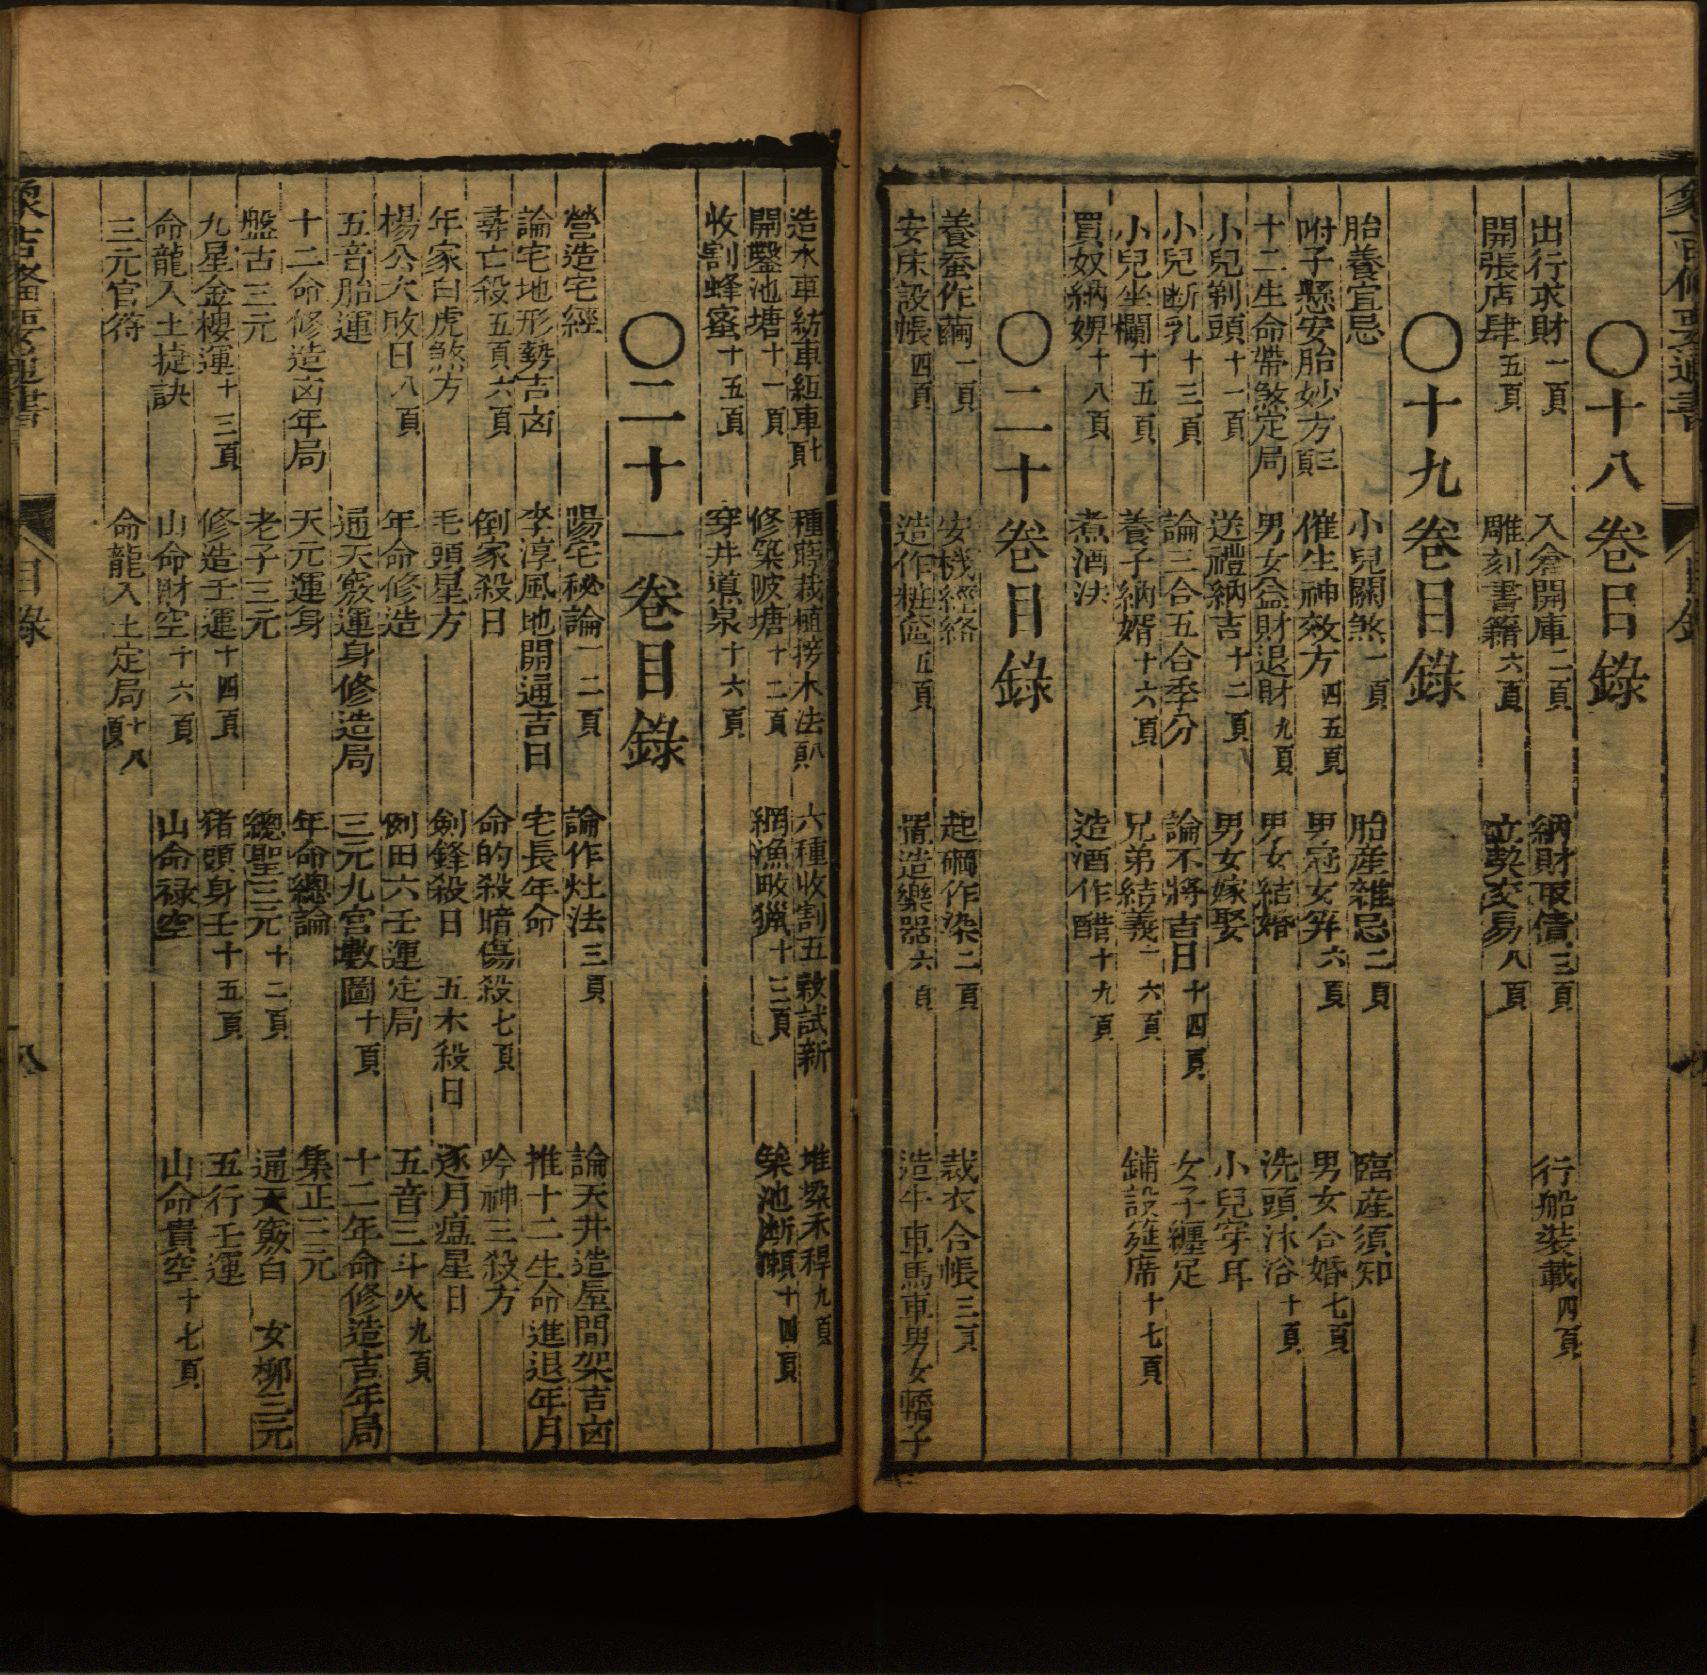 ○十八卷目錄
出行求財一頁 入倉開庫二頁 納財取債三頁 行船裝載四頁
開張店肆五頁 雕刻書籍六頁 立契交易八頁
○十九卷目錄
胎養宜忌 小兒關煞一頁 胎產雜忌二頁 臨產須知
咐子懸安胎妙方三頁 催生神效方四五頁 男冠女笄六頁 男女合婚七頁
十二生命帶煞定局 男女益財退財九頁 男女結婚 洗頭沐浴十頁
小兒剃頭十一頁 送禮納吉十二頁 男女嫁娶 小兒穿耳
小兒断乳十三頁 論三合五合季分 論不將吉日十四頁 女子纏足
小兒坐欄十五頁 養子納婿十六頁 兄弟結義十六頁 鋪設筵席十七頁
買奴納婢十八頁 煮酒法 造酒作醋十九頁
○二十卷目錄
養蚕作繭一頁 安機經絡 起綱作染二頁 裁衣合帳三頁
安床設帳四頁 造作粧奩五頁 置造樂器六頁 造牛車馬車男女轎子
造水車紡車絚車七頁 種蒔栽植接木法八頁 六種收割五穀試新 堆垜禾稈九頁
開鑿池塘十一頁 修築陂塘十二頁 網漁畋獵十三頁 築池断獺十四頁
收割蜂蜜十五頁 穿井導泉十六頁
○二十一卷目錄
營造宅經 陽宅秘論一二頁 論作灶法三頁 論天井造屋間架吉凶
論宅地形勢吉凶 李淳風地開通吉日 宅長年命 推十二生命進退年月
尋亡殺五頁六頁 倒家殺日 命的殺暗傷殺七頁 吟神三殺方
年家白虎煞方 毛頭星方 劍鋒殺日 五木殺日 逐月瘟星日
楊公大敗日八頁 年命修造 例田六壬運定局 五音三斗火九頁
五音胎運 通天竅運身修造局 三元九宮數圖十頁 十二年命修造吉年局
十二命修造凶年局 天元運身 年命總論 集正三元
盤古三元 老子三元 總聖三元十二頁 通天竅白 女柳三元
九星金樓運十三頁 修造壬運十四頁 猪頭身壬十五頁 五行壬運
命龍入土捷訣 山命財空十六頁 山命祿空 山命貴空十七頁
三元官符 命龍入土定局十八頁
目錄